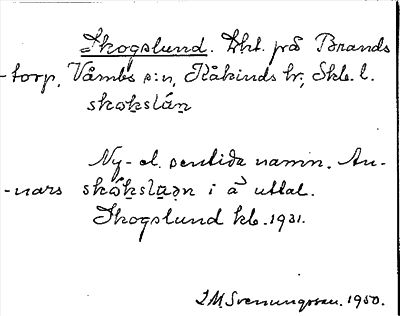 Skogslund. Lht. på Brands
-torp, Våmbs s:n, Kåkinds hr, Skb. l.
skok̠slán̠
Ny- el. sentida namn. An-
-nars skók̠sla̠ən i å uttal.
Skogslund kb. 1931.
I.M. Svenungsson. 1950.